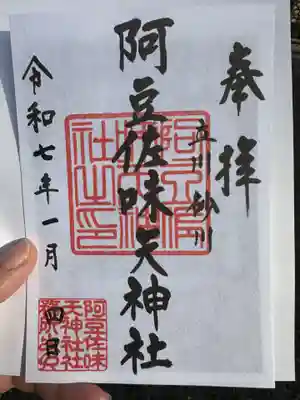 奉拝
立川砂川
阿豆佐味天神社
令和七年一月
四日
阿豆佐味
天神社社
務所之印